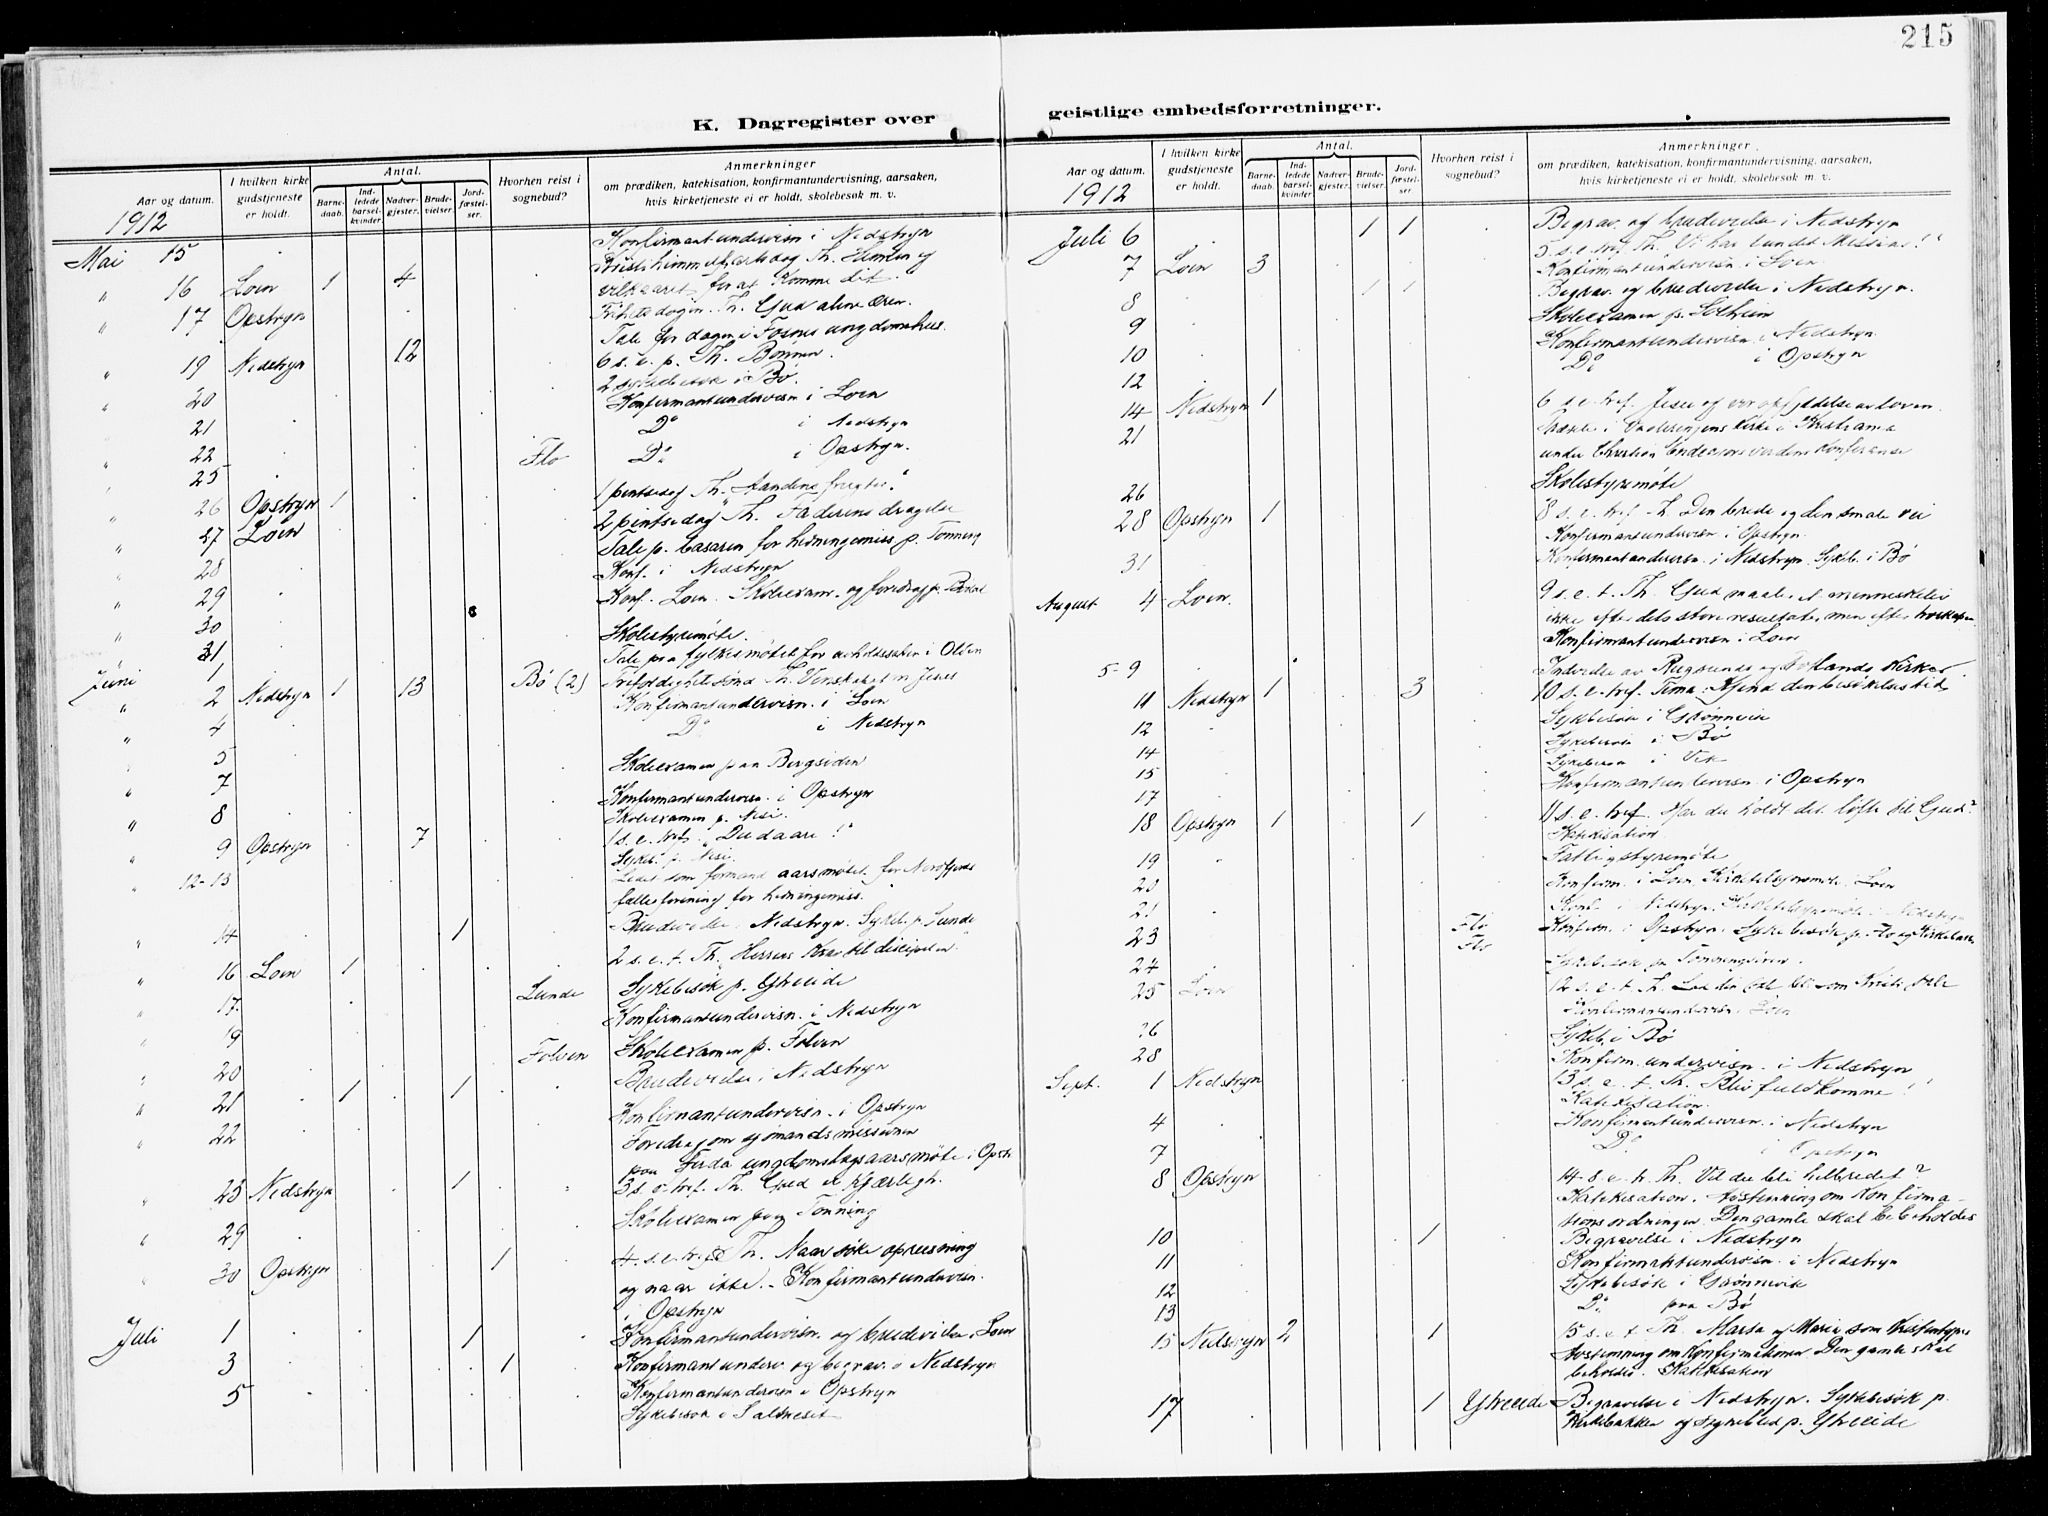 215
K. Dagregister over geistlige embedsforretninger.
Aar og datum.
I hvilken kirke gudstjeneste er holdt.
Antal.
Barnedaab.
Indledede barselkvinder.
Nadvergjester.
Brudevielser.
Jordfæstelser.
Hvorhen reist i sognebud?
Anmerkninger
om prædiken, katekisation, konfirmantundervisning, aarsaken,
hvis kirketjeneste ei er holdt, skolebesøk m. v.
1912
Mai 15 Konfirmantundervisn i Nedstryn
" 16 Loen 1 4 Kristi himmelfartsdag Th. Himlen og
vilkaaret for at komme dit.
" 17 Opstryn Frihetsdagen. Th. Gud alene æren.
Tale for dagen i Fosnes ungdomshus.
" 19 Nedstryn 12 6 s. e. p. Th. Bønnen.
2 sykebesøk i Bø.
" 20 Konfirmantundervisn i Loen
" 21 Do i Nedstryn
" 22 Flo Do i Opstryn.
" 25
" 26 Opstryn 1 1 pintsedag Th. Aandens frugter."
" 27 Loen 2 pintsedag Th. Faderens dragelse
Tale p. basaren for hedningemiss p. Tonning
" 28 Konf. i Nedstryn
" 29 Konf. Loen. Skoleexam. og foredrag p.
" 30 Skolestyremøte.
31 Tale paa fylkesmøtet for avholdssaken i Olden
Juni 1 Bø (2)
" 2 Nedstryn 1 13 Trefoldighetssønd Th. Venskabet m Jesus
" 4 Konfirmantundervisn. i Loen
5 Do i Nedstryn
" 7 Skoleexamen paa Bergsiden
" 8 Konfirmantundervisn. i Opstryn
Skoleexamen p. Nesi.
" 9 Opstryn 7 1 s. e. tref. "Du daare!"
Sykeb. p. Nesi.
" 12-13 Ledet som formand aarsmøtet for Nordfjords
fællesforening for hedningemiss.
" 14 1 Brudevielse i Nedstryn. Sykeb. p. Lunde
" 16 Loen 1 2 s. e. t. Th. Herrens krav til disciplen"
" 17. Lunde Sykebesøk p. Ytreeide
" 19 Konfirmantundervisn. i Nedstryn
" 20 Folven Skoleexamen p. Folven
" 21 1 1 Brudevielse i Nedstryn
" 22 Konfirmantundervisn. i Opstryn
Foredrag om sjømandsmissionen
paa Firda ungdomslags aarsmøte i Opstr
" 23 Nedstryn 1 3 s. e. tref. Th. Gud er kjærligh.
" 29 Skoleexamen paa Tonning
" 30 Opstryn 1 4 s. e. tref. Th. Naar søke opreisning
og naar ikke. - Konfirmantundervisn.
i Opstryn
Juli 1 1 Konfirmantundervisn. og brudevielse i Loen
3 1 Konfirmantunderv. og begrav. i Nedstryn
5 Konfirmantundervisn i Opstryn
Sykebesøk i Saltneset
Aar og datum.
I hvilken kirke gudstjeneste er holdt.
Antal.
Barnedaab.
Indledede barselkvinder.
Nadvergjester.
Brudevielser.
Jordfæstelser.
Hvorhen reist i sognebud?
Anmerkninger
om prædiken, katekisation, konfirmantundervisning, aarsaken,
hvis kirketjeneste ei er holdt, skolebesøk m. v.
1912
Juli 6 1 1 Begrav. og brudevielse i Nedstryn
7 Loen 3 5 s. e. tref. Th. Vi har fundet Messias!"
Konfirmantundervisn. i Loen.
8 1 1 Begrav. og brudevielse i Nedstryn.
9 Skoleexamen p. Solheim
10 Konfirmantundervisn. i Nedstryn
12 Do i Opstryn
14 Nedstryn 1 6 s. e. tref. Jesu og vor opfyldelse av loven.
21 i kirke i Kristiania
under Christian Endeavors verdens konferanse
26 Skolestyremøte
28 Opstryn 1 8 s. e. tref. Th. Den brede og den smale vei
Konfirmantundervisn. i Opstryn.
31 Konfirmantundervisn. i Nedstryn. Sykeb. i Bø
August 4 Loen. 9 s. e. t. Th. Gud maaler et menneskeliv
ikke efter dets store resultater, men efter troskapen
Konfirmantundervisn i Loen
5-9 Indvielse av Rugsunds og Totlands kirker.
11 Nedstryn 1 3 10 s. e. tref. Tema: Kjend din besøkelsestid
12 Sykebesøk i Grønnvik
14 Sykebesøk i Bø
15 Sykebesøk i Vik
17 Konfirmantundervisn. i Opstryn
18 Opstryn 1 1 11 s. e. tref. Har du holdt det løfte til Gud?
Katekisation
19 Fattigstyremøte
20 Konfirm. i Loen. Kirketilsynsmøte i Loen
21 Konf. i Nedstryn. Kirketilsynsmøte i Nedstryn
23 Flo Konfirm. i Opstryn. Sykebesøk p. Flo og
24 Flo Sykebesøk p. Tonningsøren.
25 Loen 12 s. e. t. Th.
Konfirmantundervisn. i Loen
26 Sykeb. i Bø
28 Konfirm. undervisn. i Nedstryn
Sept. 1 Nedstryn 13 s. e. t. Th. Bliv fuldkomne!"
Katekisation.
4 Konfirmantundervisn. i Nedstryn
7 Do i Opstryn
8 Opstryn 14 s. e. tr. Th. Vil du bli helbredet?
Katekisation. Avstemning om konfirma-
tionsordningen. Den gamle skal bibeholdes
10 1 Begravelse i Nedstryn
11 Konfirmantundervisn. i Nedstryn
12 Sykebesøk i Grønnvik
13 Do paa Bø
15 Nedstryn 2 1 15 s. e. t. Th. Marta og Maria som kristentyper
Avstemning om konfirmationen Den gamle skal
beholdes. Katekisation
17 1 Ytreeide Begravelse i Nedstryn. Sykebesøk p.
Kirkebakken og sognebud p. Ytreeide